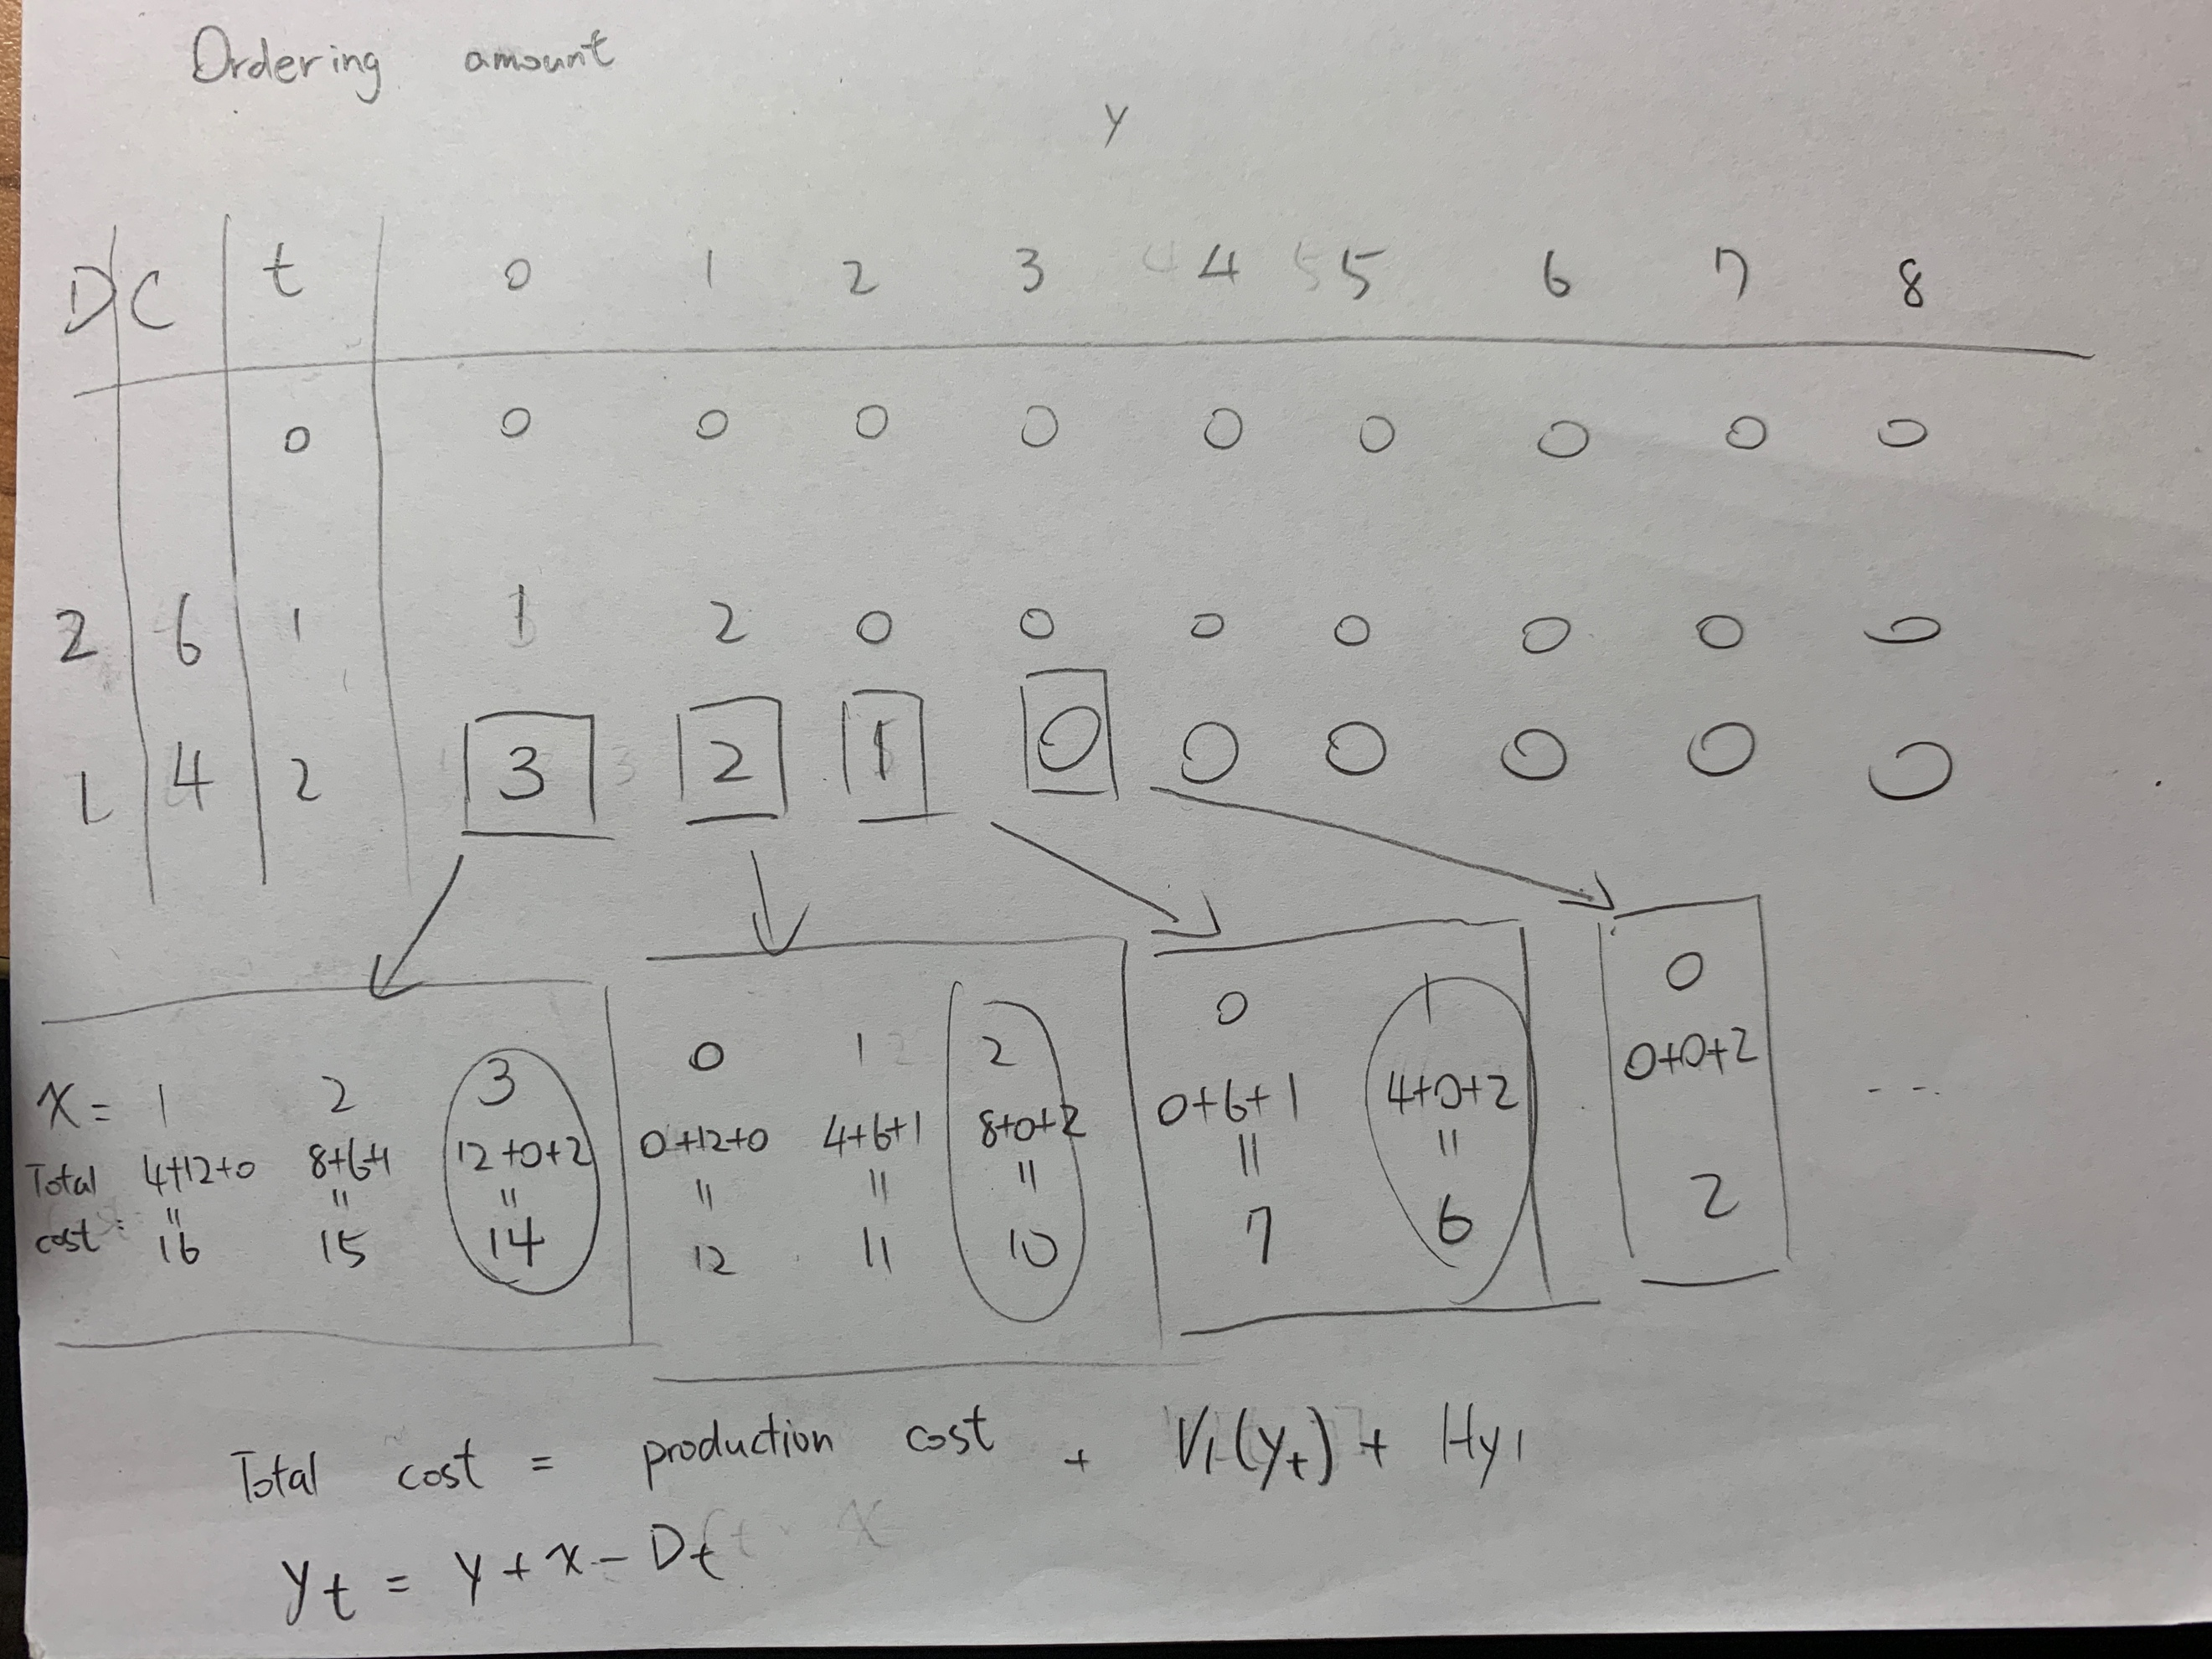 Ordering amount
y
D C t 0 1 2 3 4 5 6 7 8
0 0 0 0 0 0 0 0 0 0
2 6 1 1 2 0 0 0 0 0 0 0
1 4 2 3 2 1 0 0 0 0 0 0
x = 1 2 3
Total 4+12+0 8+6+1 12+0+2
" " "
cost: 16 15 14
0 1 2
0+12+0 4+6+1 8+0+2
" " "
12 11 10
0 1
0+6+1 4+0+2
" "
7 6
0
0+0+2
2
---
Total cost = production cost + V1(yt) + Hy1
yt = y + x - Dt